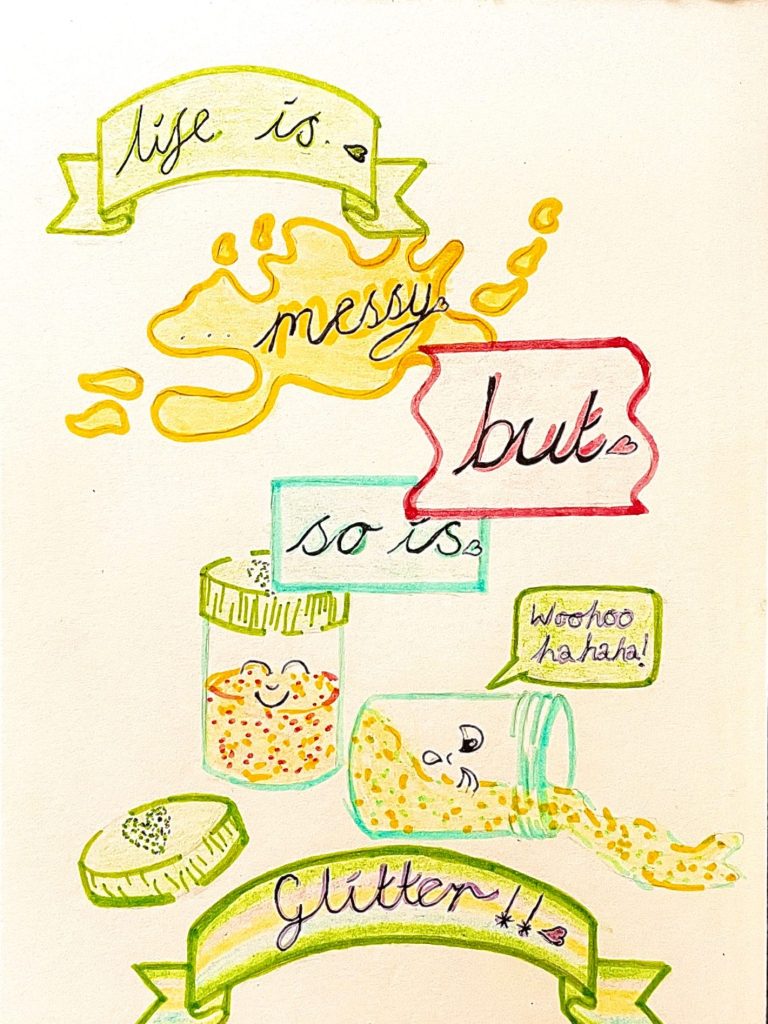 life is.
messy.
but.
so is.
Woohoo
hahaha!
Glitter!!